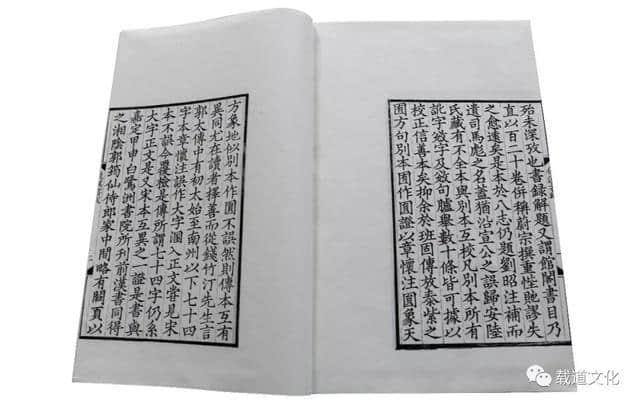 殆未深攷也書録解題又謂館閣書目乃
直以百二十卷併稱蔚宗撰重性貤謬失
之愈遠矣是本於八志仍題劉昭注補而
遺司馬彪之名蓋猶沿宣公之誤歸安陸
氏藏有不全本與別本互校凡別本所有
訛字敓字及敓句臚舉數十條皆可據以
校正信善本矣抑余於班固傳放泰紫之
圓方句別本固作圓證以章懷注圓象天
方象地似別本作圓不誤然則傳本互有
異同尤在讀者擇善而從錢竹汀先生言
郭太傳中有初太始至南州以下七十四
字本章懷注誤作大字溷入正文嘗見宋
本不誤今覆檢是傳所謂七十四字仍系
大字正文是又宋本互異之一證是書與
嘉定甲申白鷺洲書院所刊前漢書同得
之湘陰郭筠仙侍郎家中間略有闕頁以
载道文化